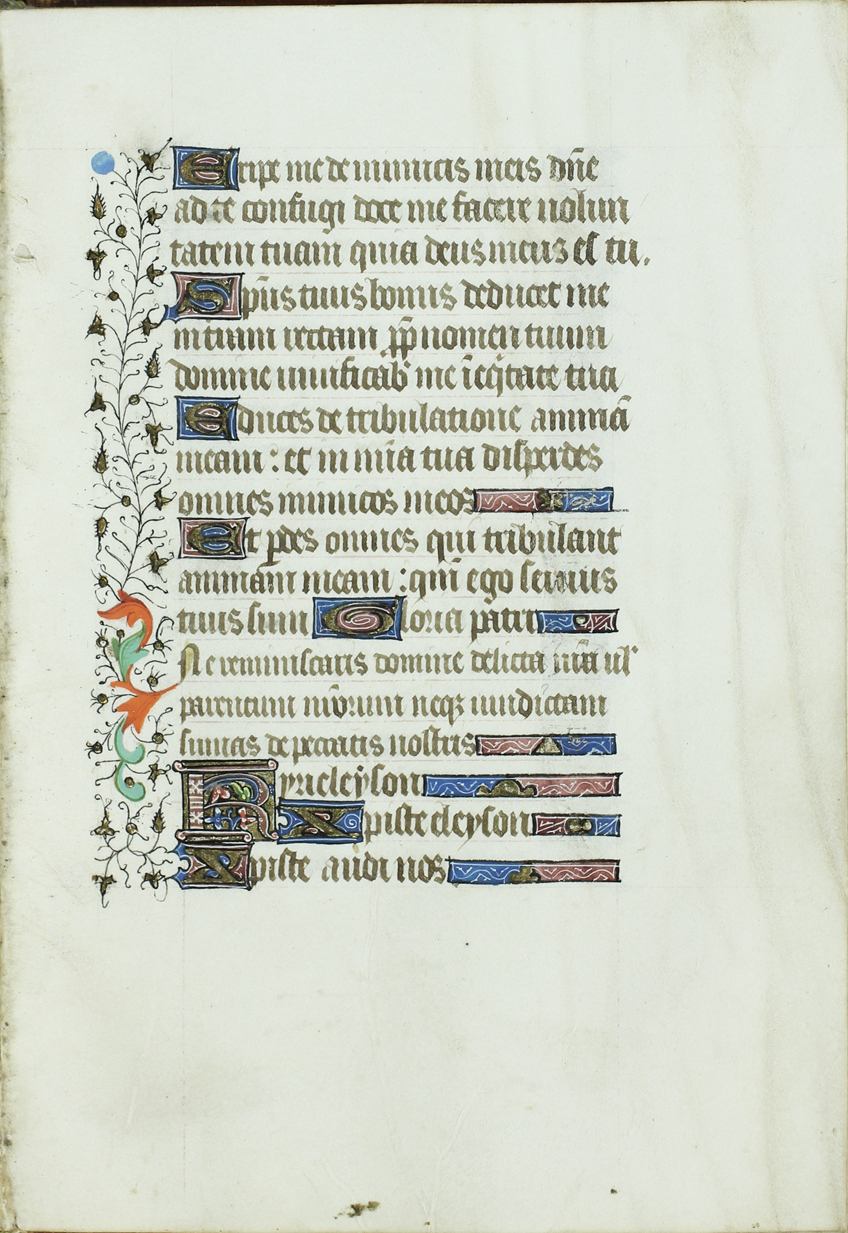 Eripe me de inimicis meis dn̄e
ad te confugi doce me facere uolun
tatem tuam quia deus meus es tu.
Sp̄us tuus bonus deducet me
in tuam rectam pp̄ nomen tuum
domine uiuificab᷒ me ī eq̄tate tua
Educes de tribulatione animā
meam : et in mīa tua disperdes
omnes inimicos meos
Et ꝑdes omnes qui tribulant
animam meam : qm̄ ego seruus
tuus sum Gloria patri
Ne reminiscaris domine delicta nr̄a ul᷒
parentum nr̄orum neqꝫ uindictam
sumas de peccatis nostris
Kyrieleyson
Xpiste eleyson
Xpiste audi nos